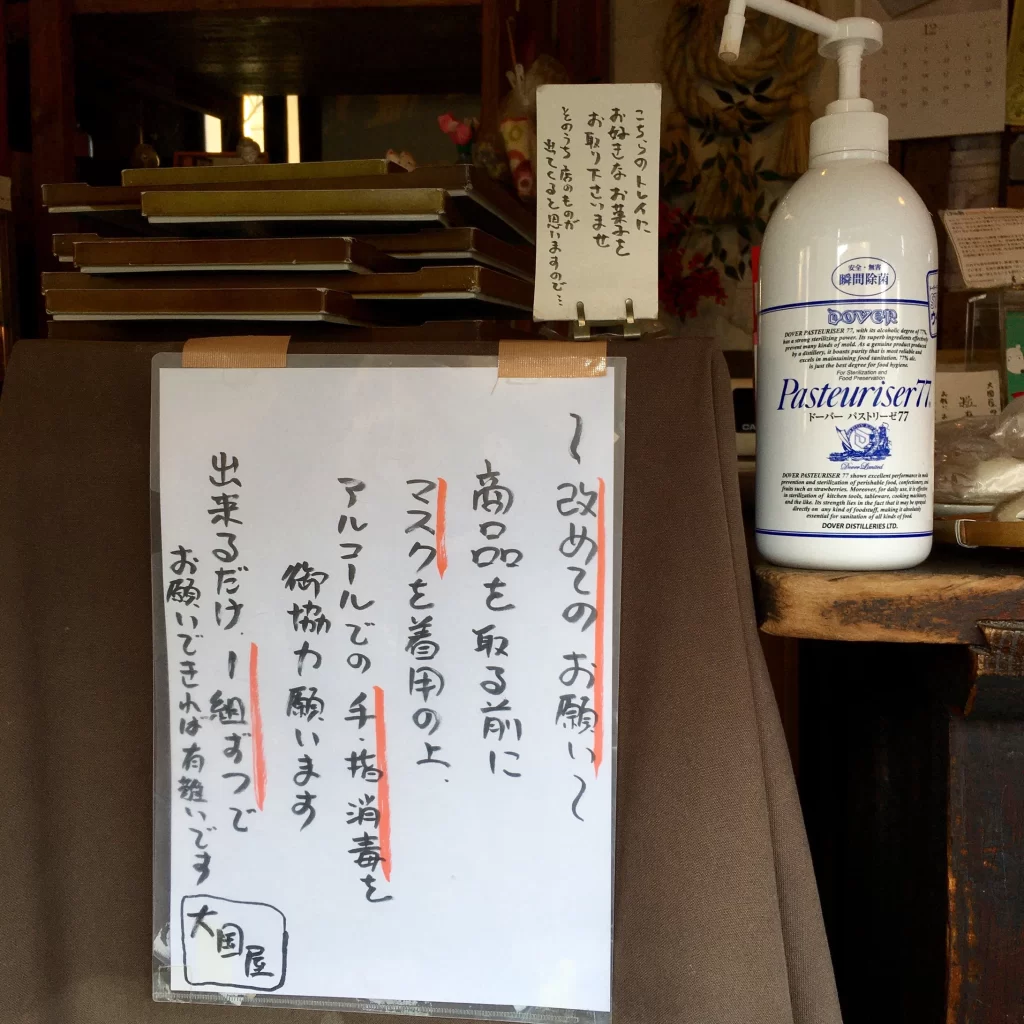 〜改めてのお願い〜
商品を取る前に
マスクを着用の上、
アルコールでの手・指消毒を
御協力願います
出来るだけ、1組ずつで
お願いできれば有難いです
大国屋
こちらのトレイに
お好きなお菓子を
お取り下さいませ
そのうち店のものが
出てくると思いますので…
安全・無害
瞬間除菌
DOVER
DOVER PASTEURISER 77, with its alcoholic degree of 77%,
has a strong sterilizing power. Its superb ingredients effectively
prevent many kinds of mold. As a genuine product produced
by a distillery, it boasts purity that is most reliable and
excels in maintaining food sanitation. 77% alc.
is just the best degree for food hygiene.
For Sterilization and
Food Preservation
Pasteuriser77
ドーバー パストリーゼ77
Dover Limited
DOVER PASTEURISER 77 shows excellent performance in mold
prevention and sterilization of perishable food, confectionery, and
fruits such as strawberries. Moreover, for daily use, it is effective
in sterilization of kitchen tools, tableware, cooking machinery,
and the like. Its strength lies in the fact that it may be sprayed
directly on any kind of foodstuff, making it absolutely
essential for sanitation of all kinds of food.
DOVER DISTILLERIES LTD.
12